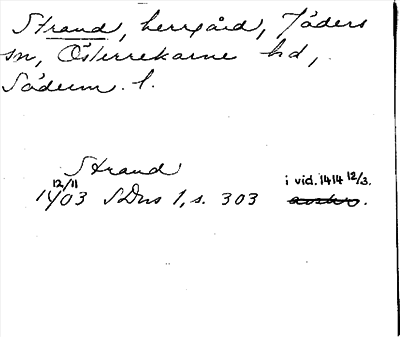 Strand, herrgård, Jäders
sn, Österrekarne hd,
Söderm. l.
Strand
12/11 i vid. 1414 12/3.
1403 SDns 1, s. 303 avskr.